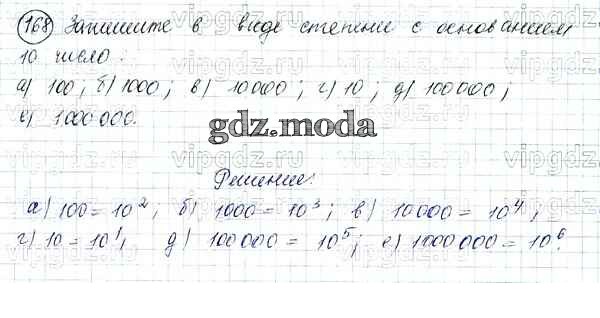 168 Запишите в виде степени с основанием
10 число:
а) 100; б) 1000; в) 10000; г) 10; д) 100000;
е) 1000000.
gdz.moda
Решение:
а) 100 = 10²; б) 1000 = 10³; в) 10000 = 10⁴;
г) 10 = 10¹; д) 100000 = 10⁵; е) 1000000 = 10⁶.
vipgdz.ru